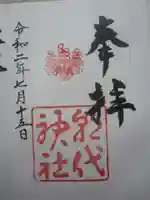 奉拝
能代
神社
令和二年七月十五日